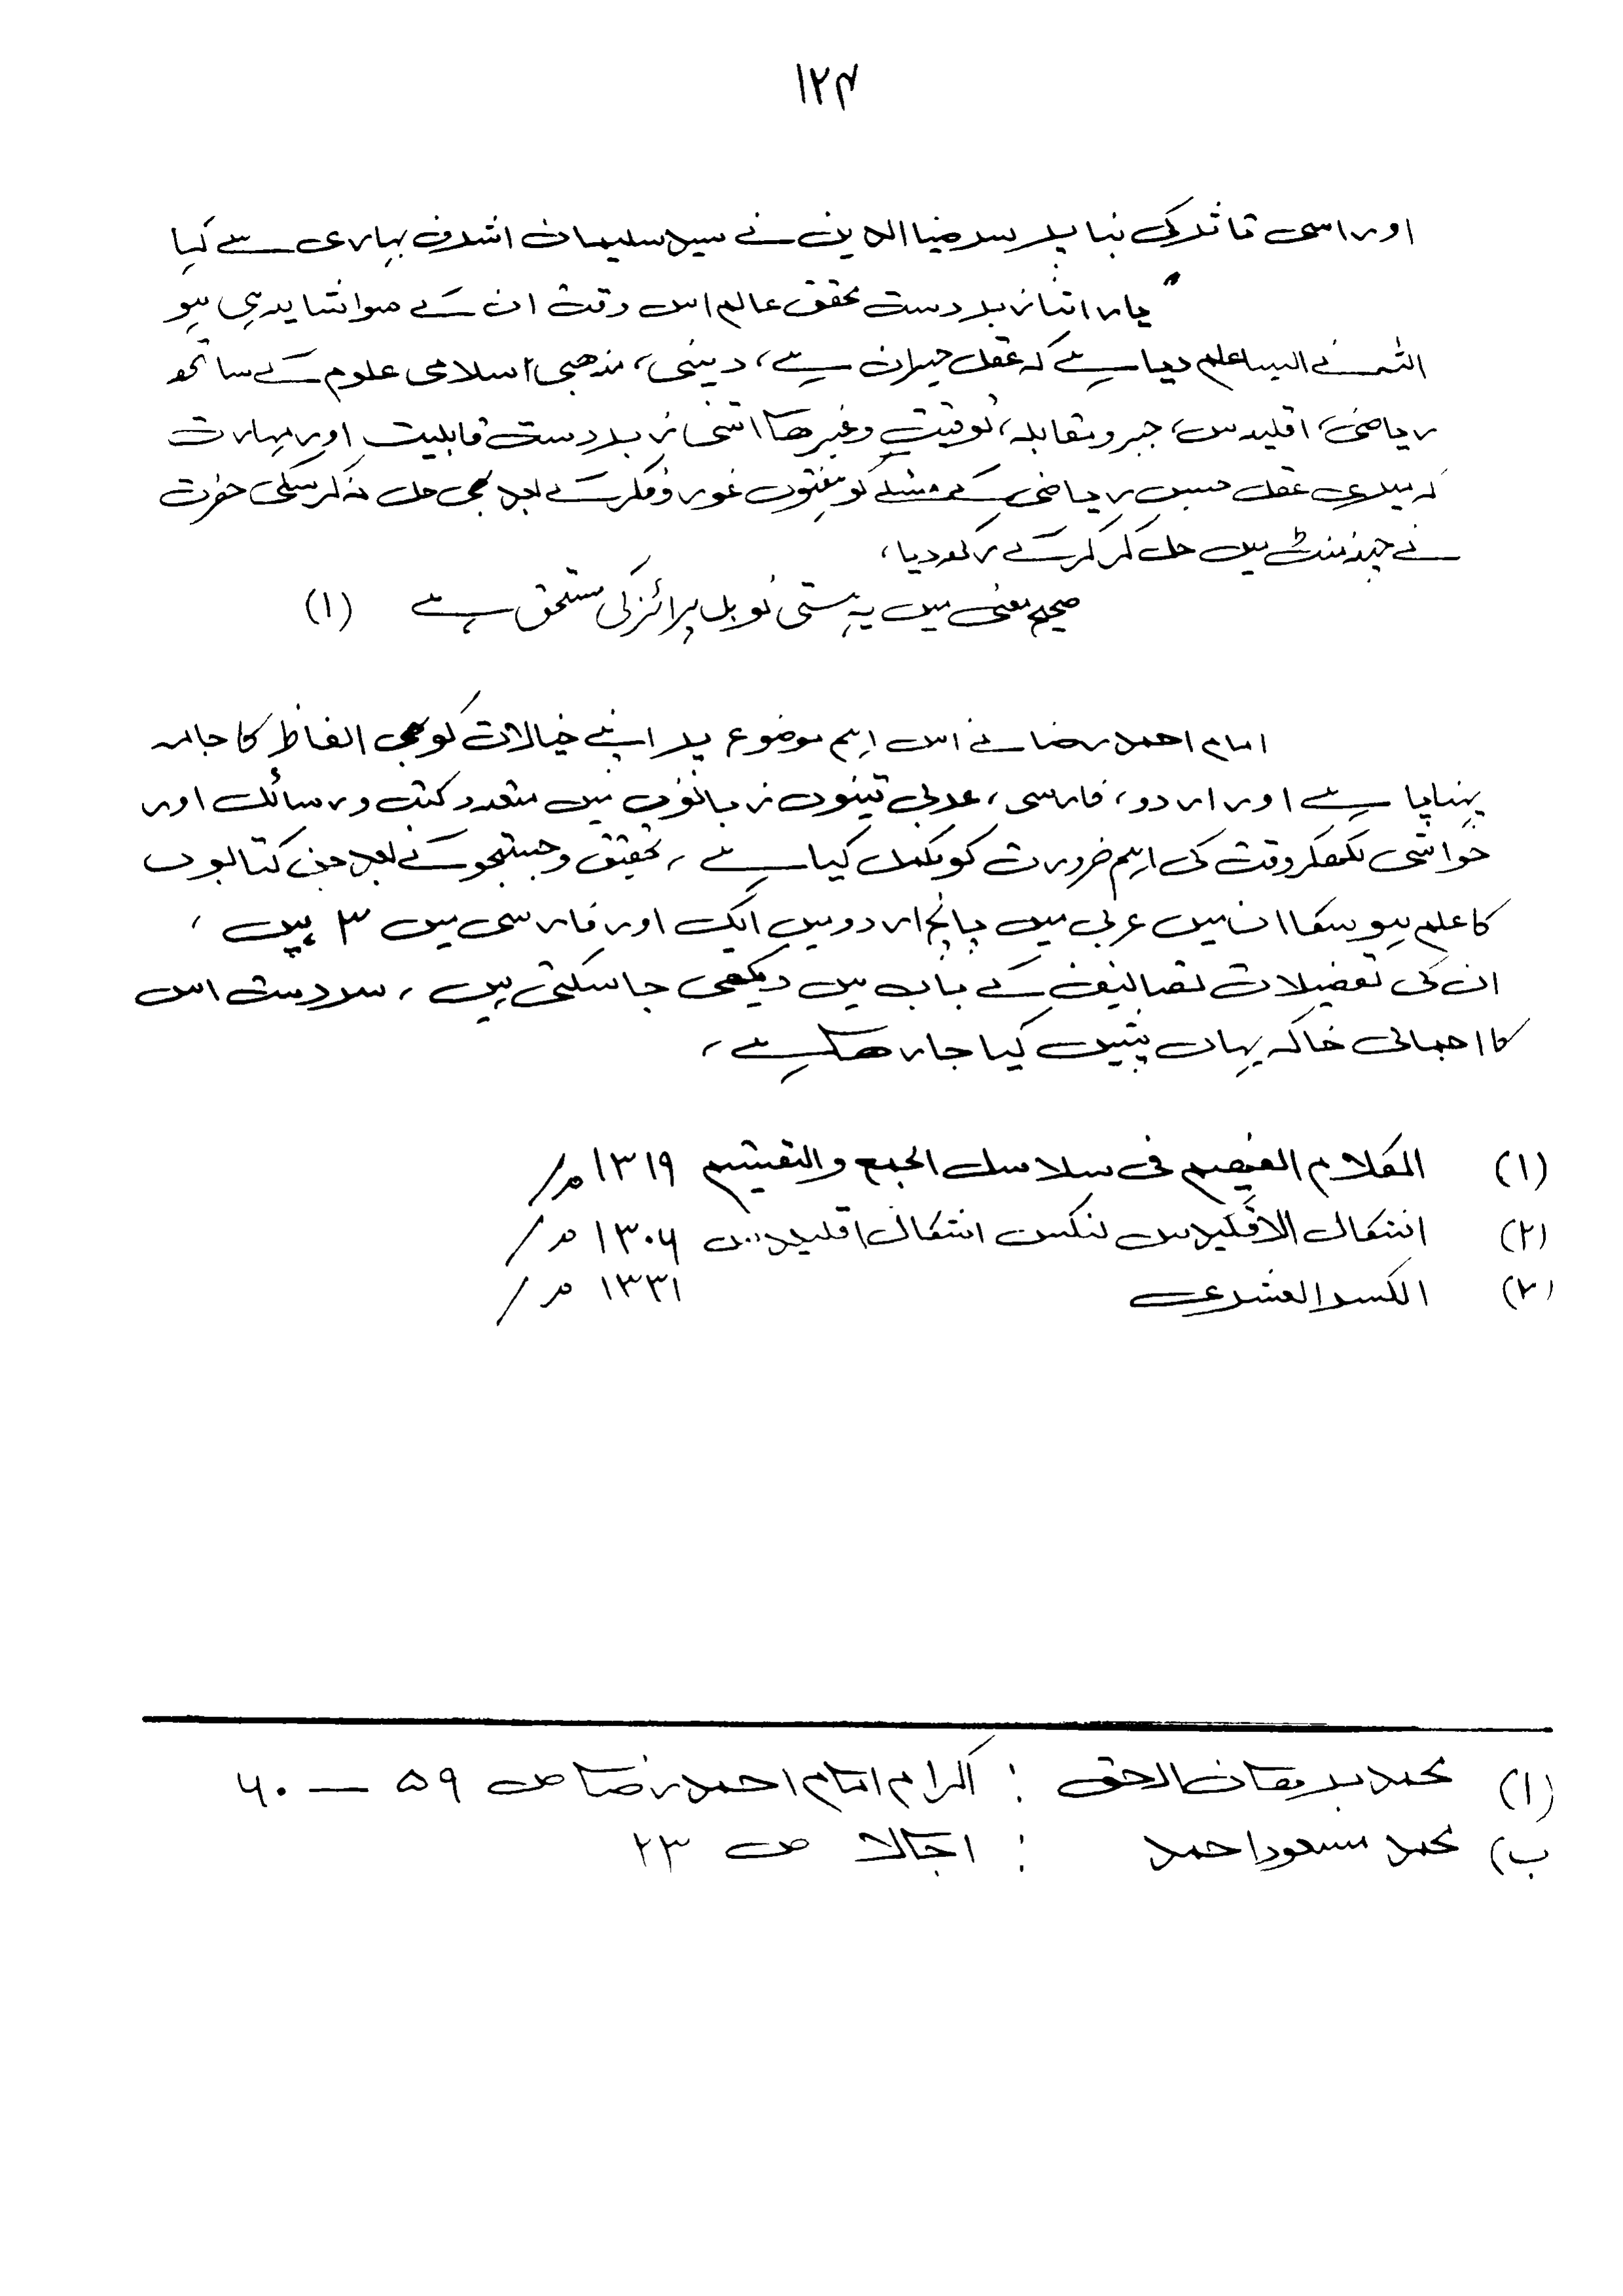 ۱۲۴
اور اسی تاثر کی بنا پر سر ضیا الدین نے سید سلیمان اشرف بہاری سے کہا
"یار اتنا زبردست محقق عالم اس وقت ان کے سوا شاید ہی ہو
اللہ نے ایسا علم دیا ہے کہ عقل حیران ہے، دینی، مذھبی اسلامی علوم کے ساتھ
ریاضی، اقلیدس، جبر و مقابلہ، توقیت وغیرھا اتنی زبردست قابلیت اور مہارت
کہ میری عقل جس ریاضی کے مسئلے کو ہفتوں غور و فکر کے بعد بھی حل نہ کر سکی حضرت
نے چند منٹ میں حل کر کر کے رکھ دیا،
صحیح معنی میں یہ ہستی نوبل پرائز کی مستحق ہے (۱)
امام احمد رضا نے اس اہم موضوع پر اپنے خیالات کو بھی الفاظ کا جامہ
پہنایا ہے اور اردو، فارسی، عربی تینوں زبانوں میں متعدد کتب و رسائل اور
حواشی لکھکر وقت کی اہم ضرورت کو مکمل کیا ہے، تحقیق و جستجو کے بعد جن کتابوں
کا علم ہو سکا ان میں عربی میں پانچ اردو میں ایک اور فارسی میں ۳ ہیں،
ان کی تفصیلات تصانیف کے باب میں دیکھی جا سکتی ہیں، سردست اس
کا اجمالی خاکہ یہاں پیش کیا جا رھا ہے،
(۱) الکلام الفہیم فی سلاسل الجمع والتقسیم ۱۳۱۹ھ/
(۲) اشکال الاقلیدس لنکس اشکال اقلیدس ۱۳۰۶ھ/
(۳) الکسر العشری ۱۳۳۱ھ/
(۱) محمد برھان الحق : اکرام امام احمد رضا ص ۵۹ — ۶۰
ب) محمد مسعود احمد : اجالا ص ۲۳